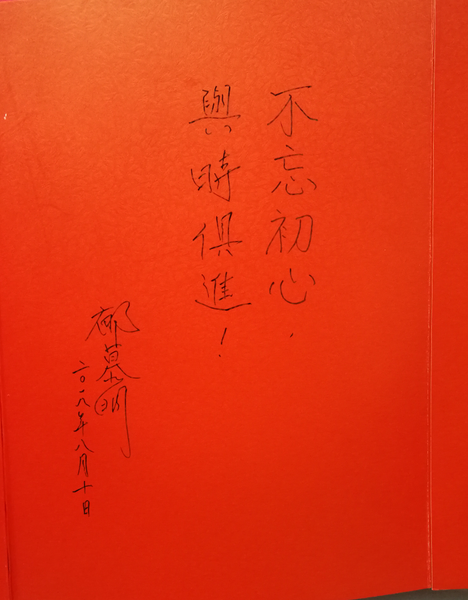 不忘初心，
與時俱進！
郁慕明
二〇一九年八月十日